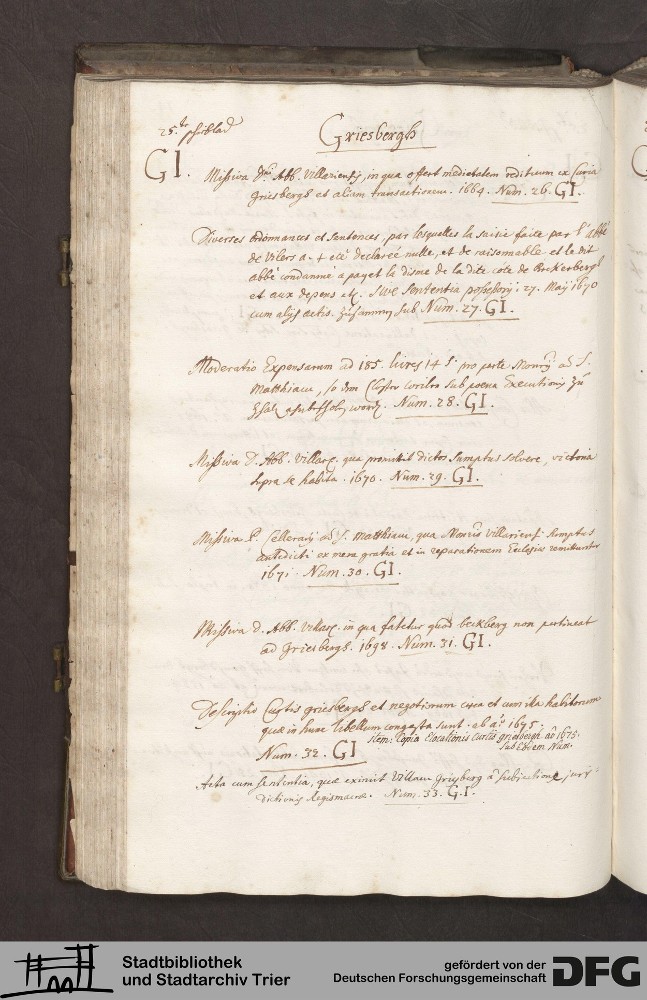 25.te schublad
Griesbergh
GI. Missiva Dni Abb. Villariensis, in qua offert medietatem redituum ex Curia
Griesbergh et aliam transactionem. 1664. Num. 26. GI.
Diverses ordonnances et sentences, par lesquelles la saisie faite par l'abbé
de Vilers a + eté declareé nulle, et de raisonnable et le dit
abbé condamné a payet la disme de la dite cote de Berkerbergh
et aux depens etc. sive sententia possessorij. 27. Maij 1670
cum alijs actis. zusammen sub Num. 27. GI.
Moderatio Expensarum ad 185. livres 14 s. pro parte Monrij ad S.
Matthiam, so dem Closter sub poena Executionis zu
Num. 28. GI.
Missiva D. Abb. Villar. qua promittit dictos sumptus solvere, victoria
supra se habita. 1670. Num. 29. GI.
Missiva P. Cellerarij ad S. Matthiam, qua Monrio Villariensi sumptus
antedicti ex mera gratia et in reparationem Ecclesiae remittuntur
1671. Num. 30. GI.
Missiva D. Abb. Villar. in qua fatetur quod beckberg non pertineat
ad Griesbergh. 1698. Num. 31. GI.
Descriptio Curtis griesbergh et negotiorum circa et cum illa habitorum
quae in hunc libellum congesta sunt. ab ao 1675.
Item: Copia Elocationis Curtis griesbergh ao 1675.
sub Eodem Num.
Num. 32. GI
Acta cum sententia, quae eximit Villam Grisberg a subjectione juris-
dictionis Regismacrae. Num. 33. G.I.
Stadtbibliothek
und Stadtarchiv Trier
gefördert von der
Deutschen Forschungsgemeinschaft
DFG